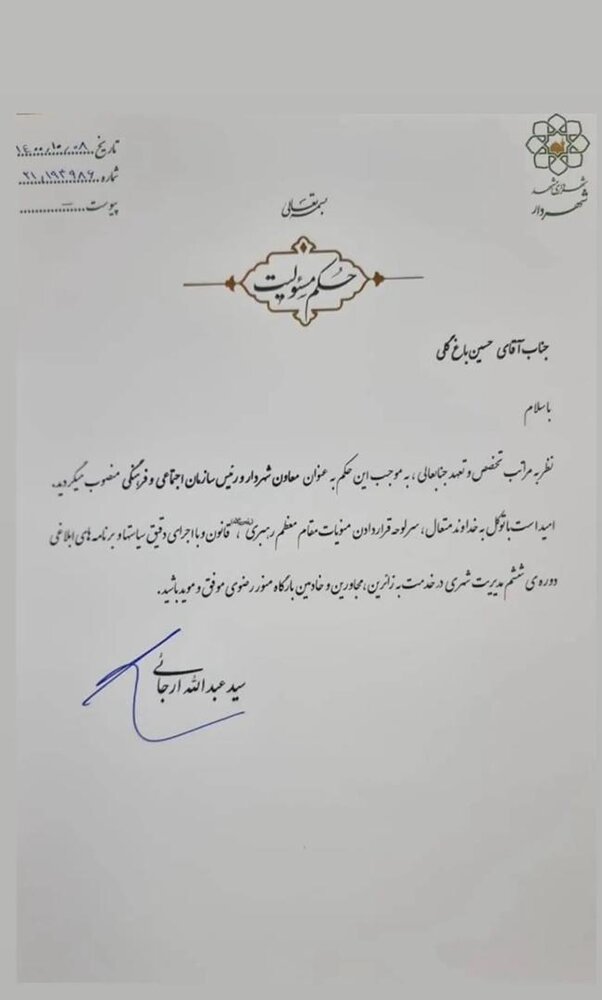 تاریخ ۱۴۰۰/۱۰/۰۸
شماره ۲۱/۱۹۳۹۸۶
پیوست
شهرداری مشهد
شهردار
بسمه تعالی
حکم مسئولیت
جناب آقای حسین باغ گلی
باسلام
نظر به مراتب تخصص و تعهد جنابعالی، به موجب این حکم به عنوان معاون شهردار و رئیس سازمان اجتماعی و فرهنگی منصوب میگردید.
امید است با توکل به خداوند متعال، سرلوحه قراردادن منویات مقام معظم رهبری، قانون و با اجرای دقیق سیاستها و برنامه های ابلاغی
دوره ی ششم مدیریت شهری در خدمت به زائرین، مجاورین و خادمین بارگاه منور رضوی موفق و موید باشید.
سید عبدالله ارجائی